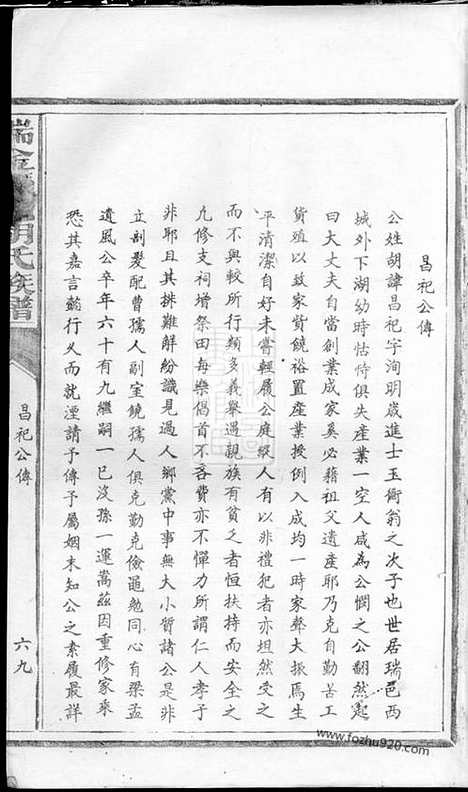 昌祀公傳
公姓胡諱昌祀字洵明歲進士玉衡翁之次子也世居瑞邑西
城外下湖幼時怙恃俱失產業一空人戚為公憫之公翻然起
曰大丈夫自當創業成家奚必藉祖父遺產耶乃克自勤苦工
貨殖以致家貲饒裕置產業授例入成均一時家聲大振焉生
平清潔自好未嘗輕履公庭縱人有以非禮犯者亦坦然受之
而不與較所行頗多義舉遇親族有貧乏者恒扶持而安全之
凡修支祠增祭田每樂倡首不吝費亦不憚力所謂仁人孝子
非耶且其排難解紛識見過人鄉黨中事無大小質諸公是非
立剖髮配曹孺人副室饒孺人俱克勤克儉黽勉同心有梁孟
遺風公卒年六十有九繼嗣一已沒孫一運嵩茲因重修家乘
恐其嘉言懿行久而就湮請予傳予屬姻末知公之素履最詳
瑞金 胡氏族譜
昌祀公傳
六九
www.fozhu920.com